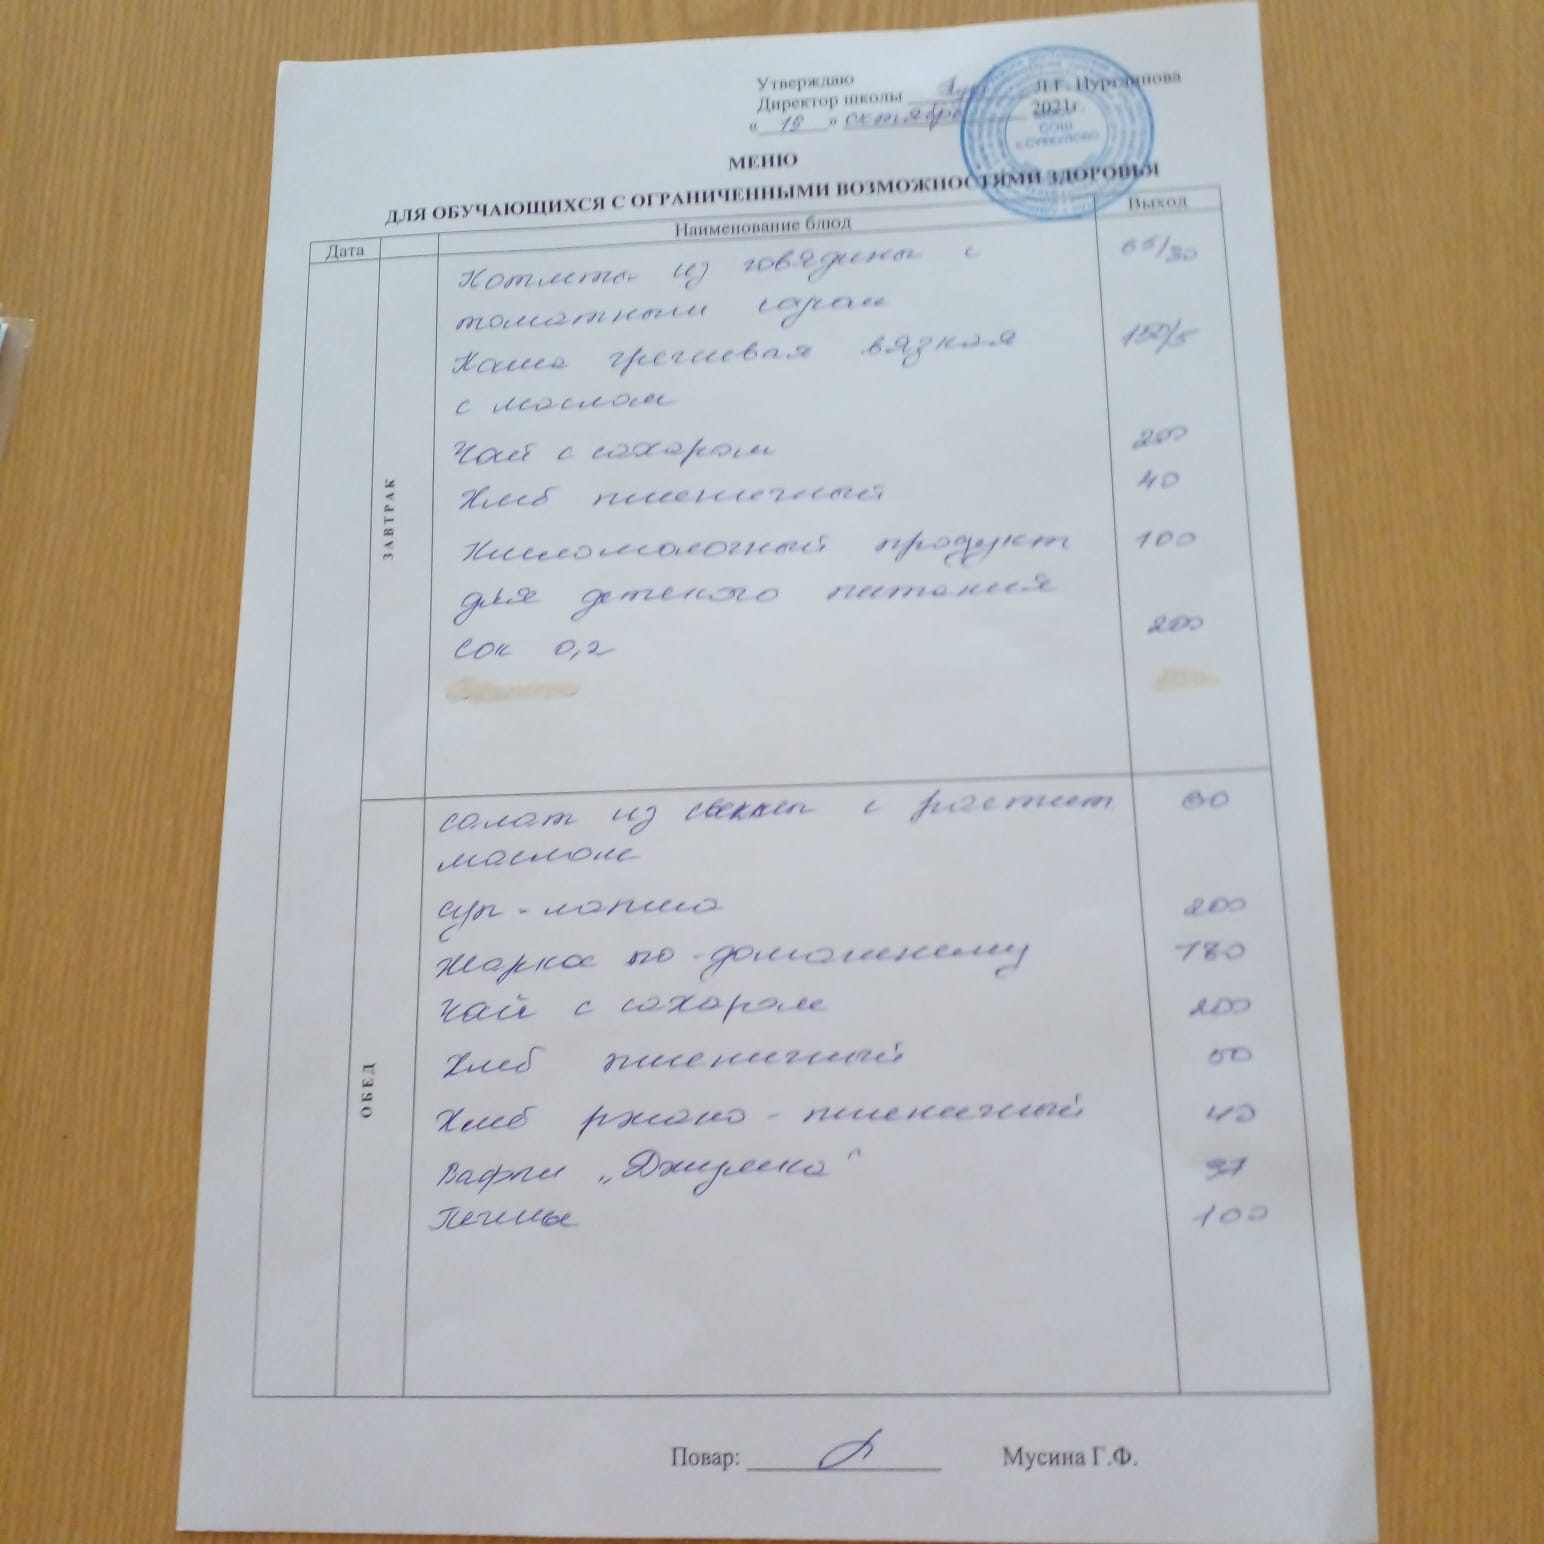 Утверждаю
Директор школы Л.Г. Нуретдинова
« 18 » октября 2021г.
СОШ
с.СУККУЛОВО
МЕНЮ
ДЛЯ ОБУЧАЮЩИХСЯ С ОГРАНИЧЕННЫМИ ВОЗМОЖНОСТЯМИ ЗДОРОВЬЯ
Дата Наименование блюд Выход
ЗАВТРАК
Котлеты из говядины с 65/30
томатным
Каша гречневая вязкая 150/5
с маслом
Чай с сахаром 200
Хлеб пшеничный 40
Кисломолочный продукт 100
для детского питания
Сок 0,2 200
ОБЕД
Салат из свеклы с растит 60
маслом
Суп-лапша 200
Жаркое по-домашнему 180
Чай с сахаром 200
Хлеб пшеничный 50
Хлеб ржано-пшеничный 40
Вафли „Джумка" 37
Печенье 100
Повар: Мусина Г.Ф.